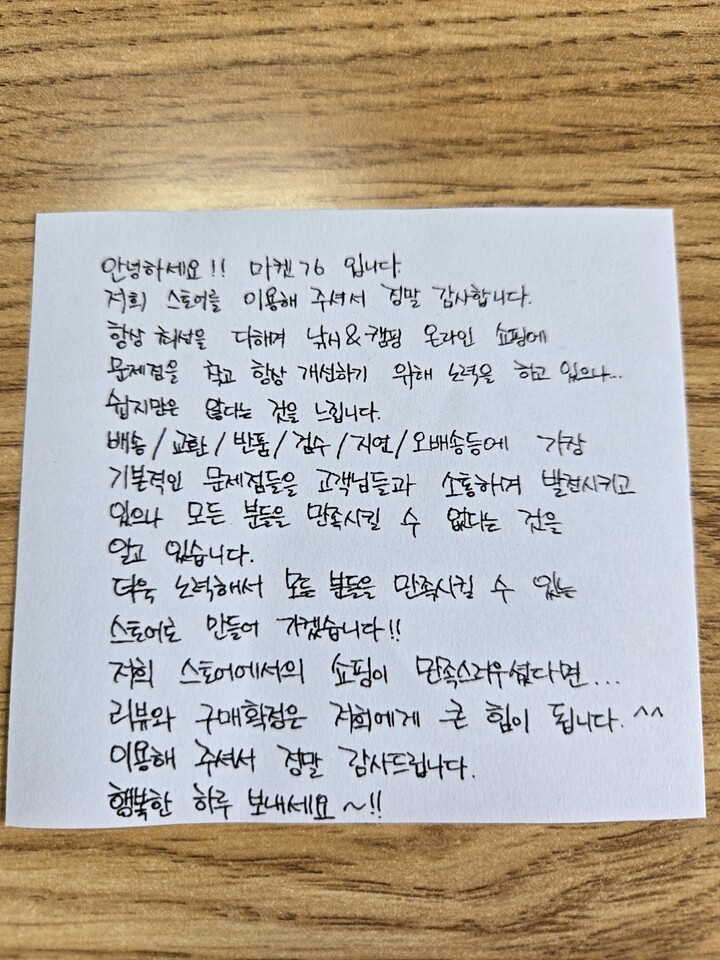 안녕하세요!! 마켓76 입니다.
저희 스토어를 이용해 주셔서 정말 감사합니다.
항상 최선을 다하며 낚시&캠핑 온라인 쇼핑에
문제점을 찾고 항상 개선하기 위해 노력을 하고 있으나...
쉽지만은 않다는 것을 느낍니다.
배송/교환/반품/검수/지연/오배송등에 가장
기본적인 문제점들을 고객님들과 소통하며 발전시키고
있으나 모든 분들을 만족시킬 수 없다는 것을
알고 있습니다.
더욱 노력해서 모든 분들을 만족시킬 수 있는
스토어로 만들어 가겠습니다!!
저희 스토어에서의 쇼핑이 만족스러우셨다면...
리뷰와 구매확정은 저희에게 큰 힘이 됩니다.^^
이용해 주셔서 정말 감사드립니다.
행복한 하루 보내세요~!!